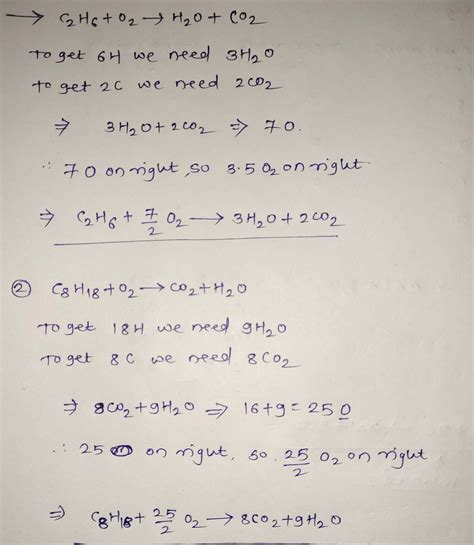 → C₂H₆ + O₂ → H₂O + CO₂
To get 6H we need 3H₂O
to get 2C we need 2CO₂
⇒ 3H₂O + 2CO₂ ⇒ 7O.
∴ 7O on right, so 3.5 O₂ on right
⇒ C₂H₆ + 7/2 O₂ → 3H₂O + 2CO₂
② C₈H₁₈ + O₂ → CO₂ + H₂O
To get 18H we need 9H₂O
To get 8C we need 8CO₂
⇒ 8CO₂ + 9H₂O ⇒ 16+9 = 25O
∴ 25 on right, so 25/2 O₂ on right
⇒ C₈H₁₈ + 25/2 O₂ → 8CO₂ + 9H₂O